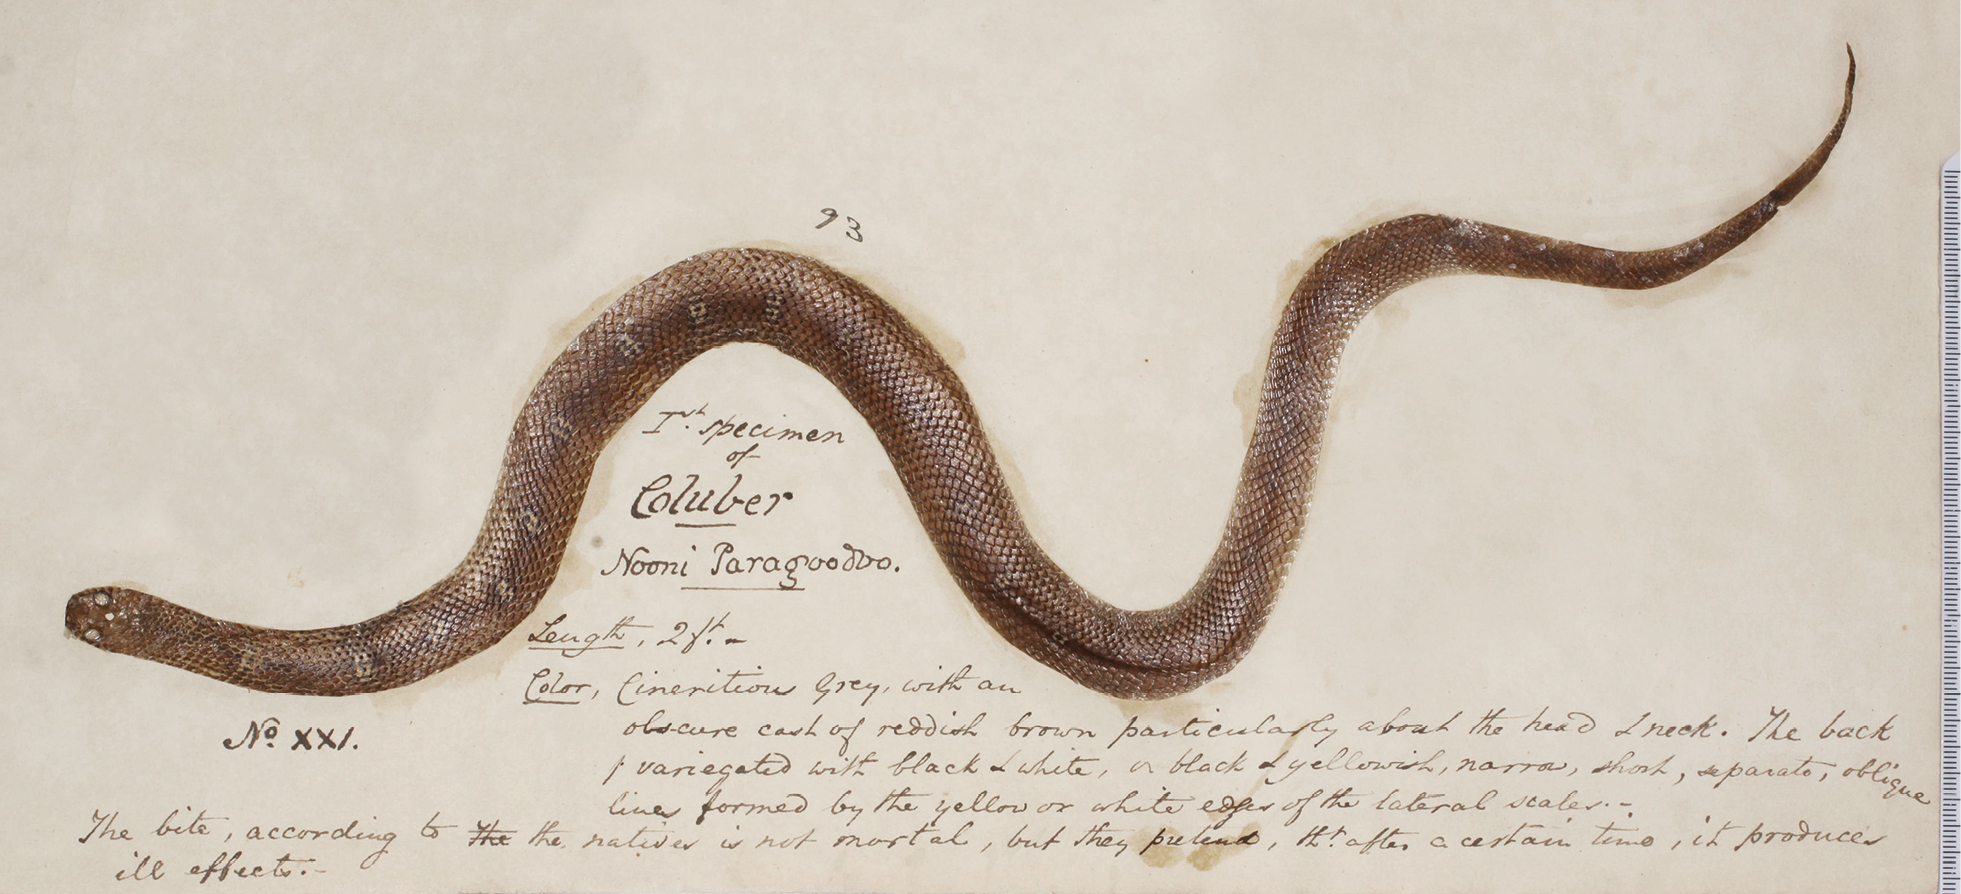 93
Ist. specimen
of
Coluber
Nooni Paragoodoo.
Length, 2ft. -
Color, Cineritious Grey, with an
obscure cast of reddish brown particularly about the head & neck. The back
variegated with black & white, or black & yellowish, narrow, short, separate, oblique
lines formed by the yellow or white edges of the lateral scales.-
No XXI.
The bite, according to the the natives is not mortal, but they pretend, tht. after a certain time, it produces
ill effects.-